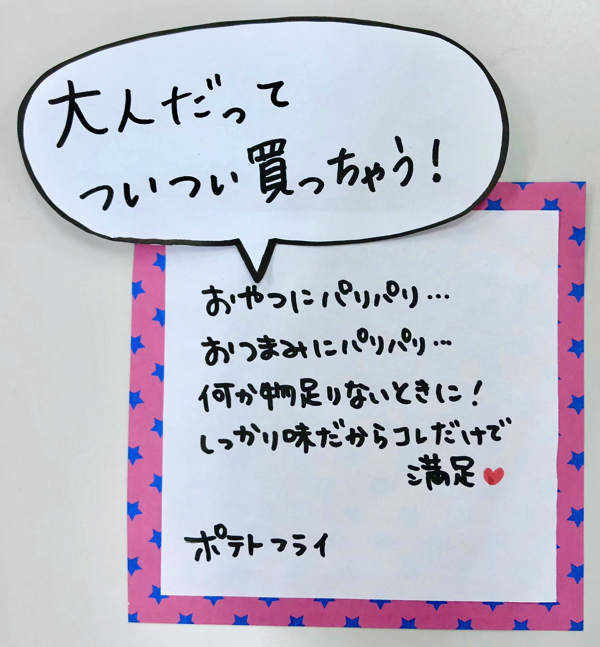 大人だって
ついつい買っちゃう！
おやつにパリパリ…
おつまみにパリパリ…
何か物足りないときに！
しっかり味だからコレだけで
満足♥
ポテトフライ